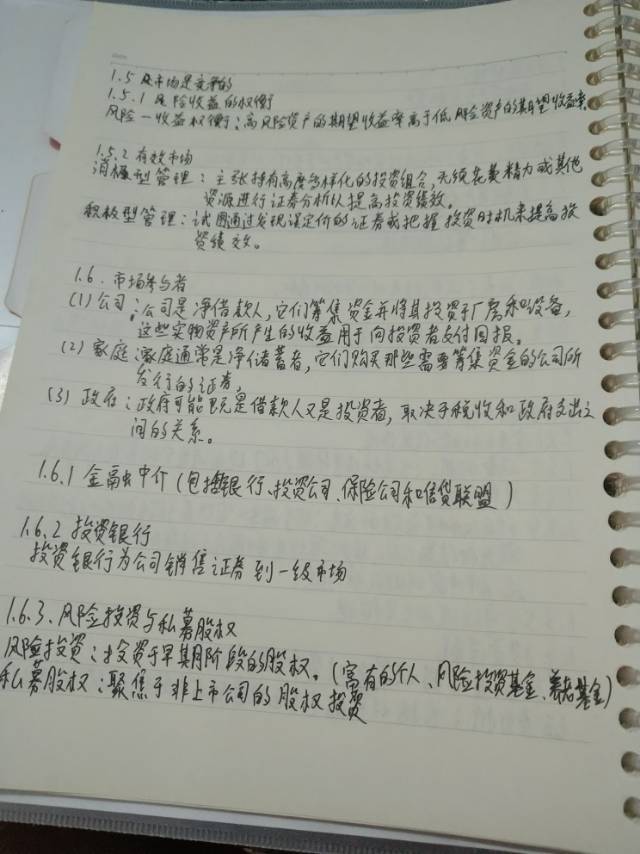 1.5 及市场是竞争的
1.5.1 风险收益的权衡
风险—收益权衡:高风险资产的期望收益率高于低风险资产的期望收益率
1.5.2 有效市场
消极型管理:主张持有高度多样化的投资组合,无须花费精力或其他
资源进行证券分析以提高投资绩效。
积极型管理:试图通过发现误定价的证券或把握投资时机来提高投
资绩效。
1.6.市场参与者
(1)公司:公司是净借款人,它们筹集资金并将其投资于厂房和设备,
这些实物资产所产生的收益用于向投资者支付回报。
(2)家庭:家庭通常是净储蓄者,它们购买那些需要筹集资金的公司所
发行的证券,
(3)政府:政府可能既是借款人又是投资者,取决于税收和政府支出之
间的关系。
1.6.1 金融中介(包括银行、投资公司、保险公司和信贷联盟)
1.6.2 投资银行
投资银行为公司销售证券到一级市场
1.6.3.风险投资与私募股权
风险投资:投资于早期阶段的股权。(富有的个人、风险投资基金、养老基金)
私募股权:聚焦于非上市公司的股权投资